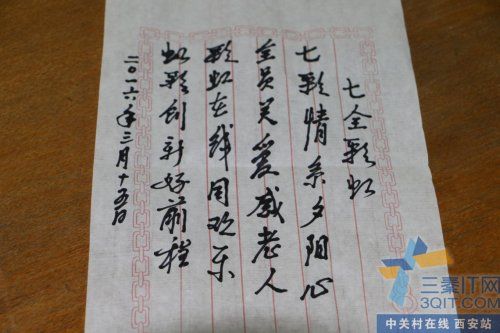 七全彩虹
七彩情系夕阳心
全员关爱感老人
彩虹在线同欢乐
虹彩创新好前程
二〇一六年三月十五日
三秦IT网
3QIT.COM
中关村在线 西安站